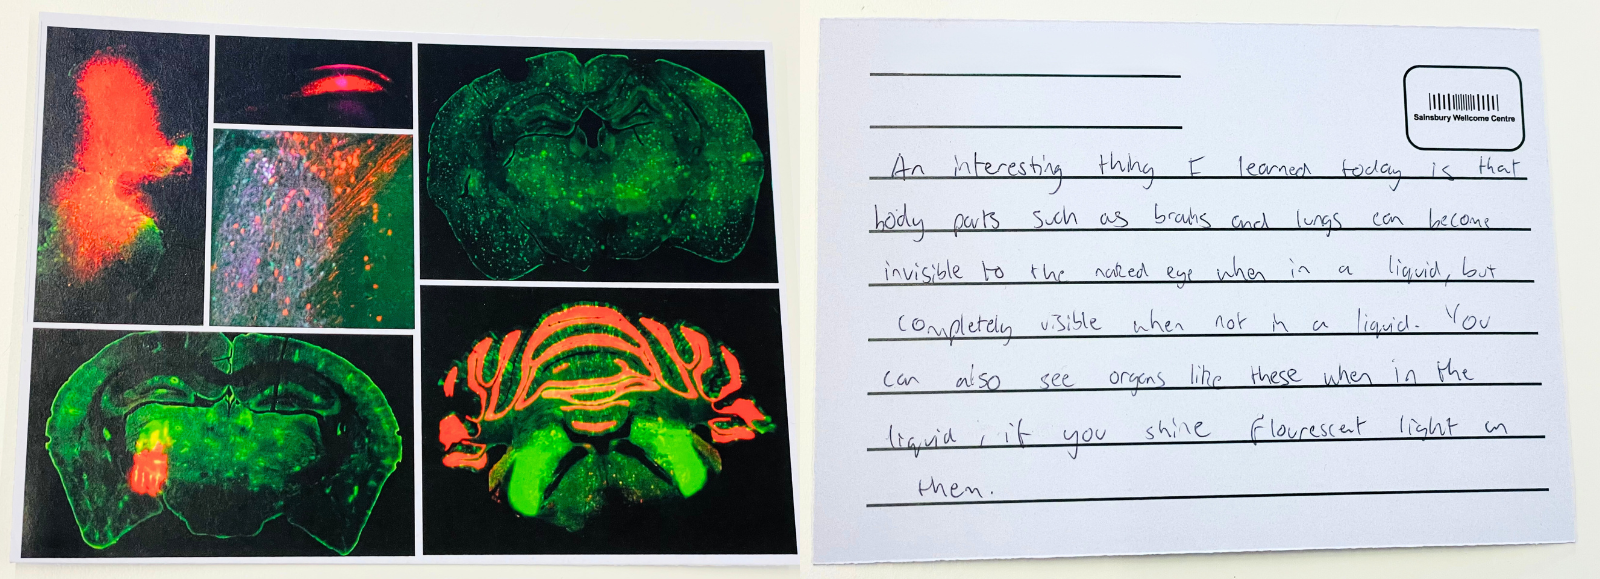 Sainsbury Wellcome Centre
An interesting thing I learned today is that
body parts such as brains and lungs can become
invisible to the naked eye when in a liquid, but
completely visible when not in a liquid. You
can also see organs like these when in the
liquid, if you shine flourescent light on
them.